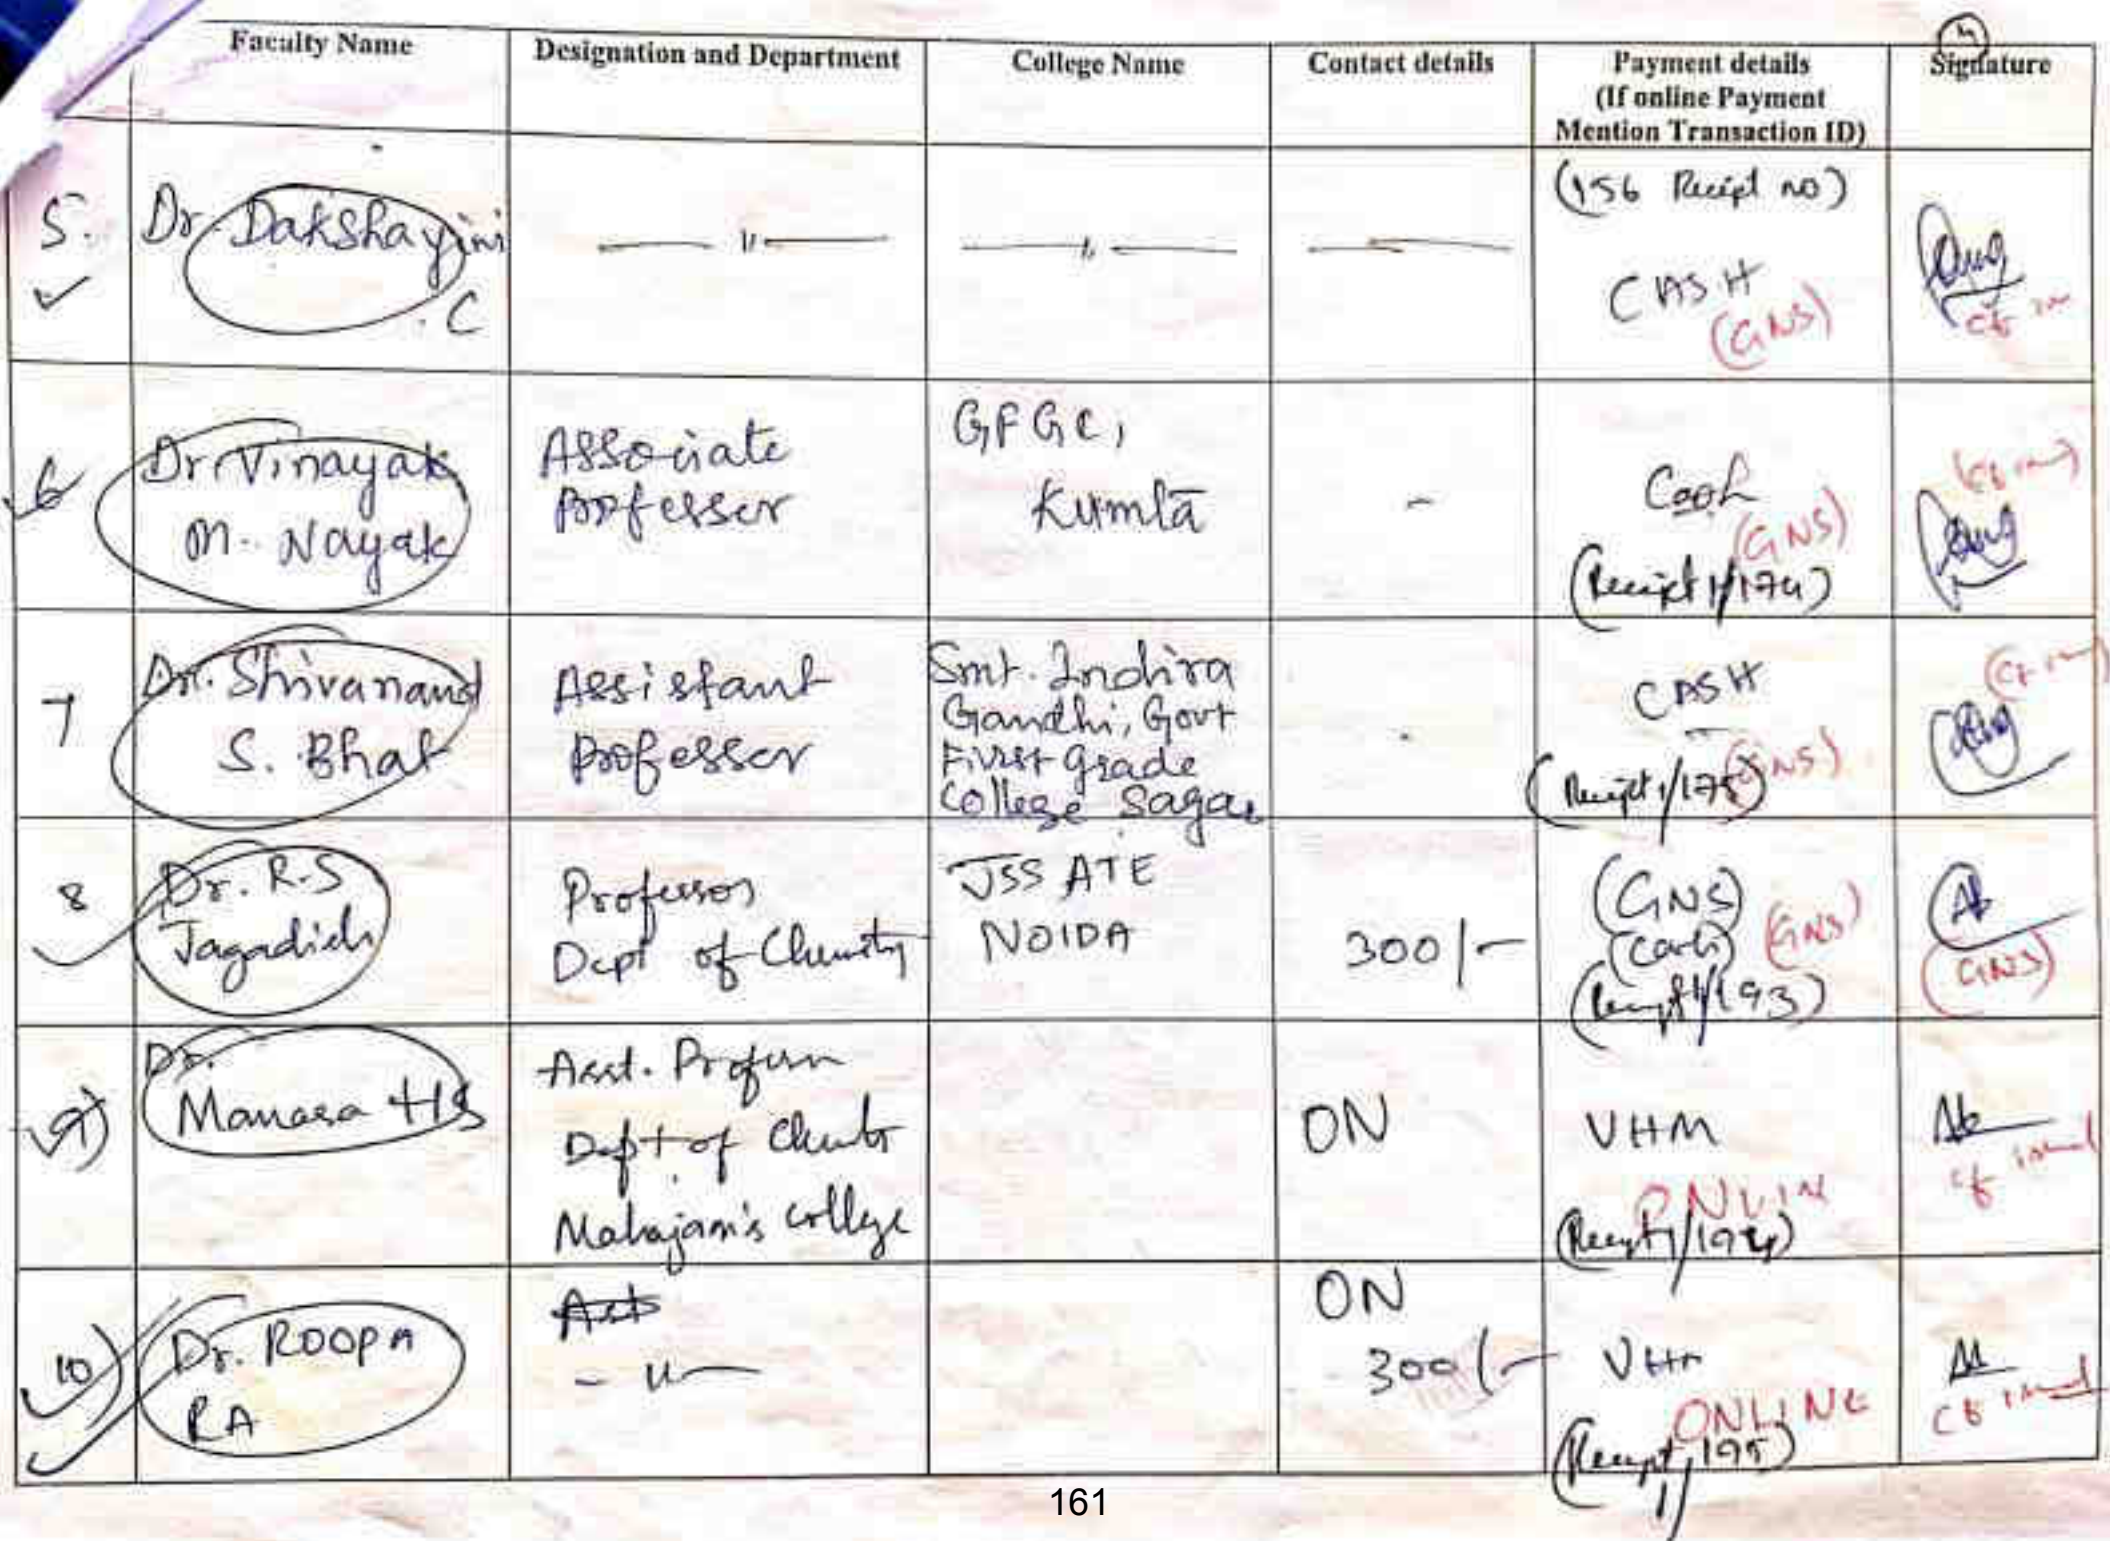 4
Faculty Name
Designation and Department
College Name
Contact details
Payment details
(If online Payment
Mention Transaction ID)
Signature
5.
Dr. Dakshayini
. C
— " —
— " —
(156 Receipt no)
CASH
(GNS)
6
Dr. Vinayak
M. Nayak
Associate
Professor
GFGC,
Kumta
-
Cash
(GNS)
(Receipt 1/174)
7
Dr. Shivanand
S. Bhat
Assistant
Professor
Smt. Indira
Gandhi, Govt
First grade
College Sagar
-
CASH
(GNS)
(Receipt 1/175)
8
Dr. R.S
Jagadish
Professor
Dept of Chemistry
JSS ATE
NOIDA
300/-
(GNS)
(Cash)
(GNS)
(Receipt 1/193)
(GNS)
9)
Dr.
Manasa HS
Asst. Professor
Dept of
Mahajan's college
ON
VHM
ONLIN
(Receipt 1/194)
10)
Dr. ROOPA
RA
- " -
ON
300/-
VHM
ONLINE
(Receipt 1/195)
161